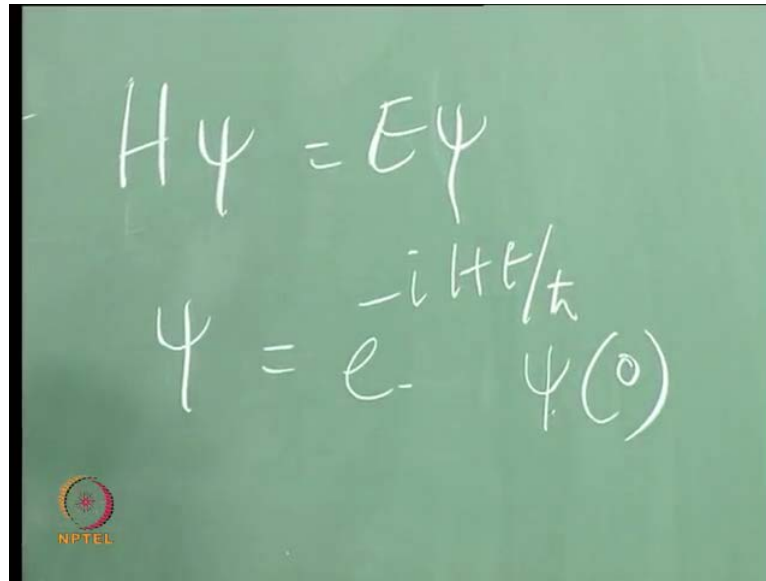 Hψ = Eψ
ψ = e^{-iHt/ħ} ψ(0)
NPTEL